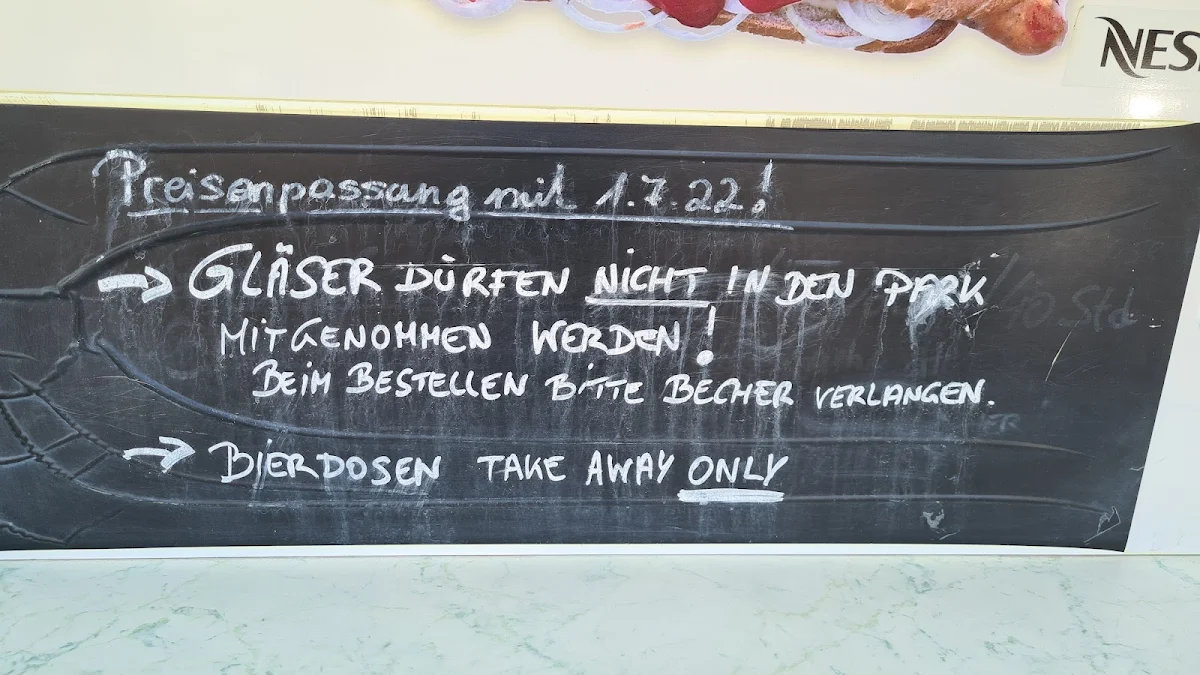 NES
Preisanpassung mit 1.7.22!
→ GLÄSER DÜRFEN NICHT IN DEN PARK
MITGENOMMEN WERDEN!
BEIM BESTELLEN BITTE BECHER VERLANGEN.
→ BIERDOSEN TAKE AWAY ONLY